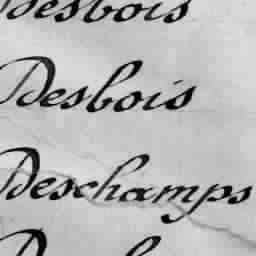 Desbois
Desbois
Deschamps